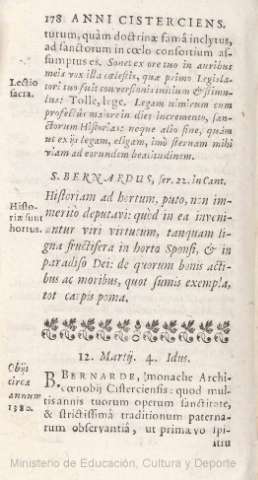 178 ANNI CISTERCIENS.
tutum, quàm doctrinæ famâ inclytus,
ad sanctorum in cœlo consortium as-
sumptus es. Sonet ex ore tuo in auribus
meis vox illa cælestis, quæ primo Legisla-
tori tuo fuit conversionis initium & stimu-
lus: Tolle, lege. Legam nimirum cum
profectûs majore in dies incremento, san-
ctorum Historias: neque alio fine, quàm
ut ex ijs legam, eligam, imò sternam mihi
viam ad eorundem beatitudinem.
Lectio
sacra.
S. BERNARDUS, ser. 22. in Cant.
Historiam ad hortum, puto, non im-
meritò deputavi: quòd in ea inveni-
antur viri virtutum, tanquam li-
gna fructifera in horto Sponsi, & in
paradiso Dei: de quorum bonis acti-
bus ac moribus, quot sumis exempla,
tot carpis poma.
Histo-
riæ sunt
hortus.
12. Martij. 4. Idus.
Obijt
circa
annum
1380.
B. BERNARDE, monache Archi-
cœnobij Cisterciensis: quod mul-
tis annis tuorum operum sanctitate,
& strictissimâ traditionum paterna-
rum observantiâ, ut primævo spi-
ritu
Ministerio de Educación, Cultura y Deporte